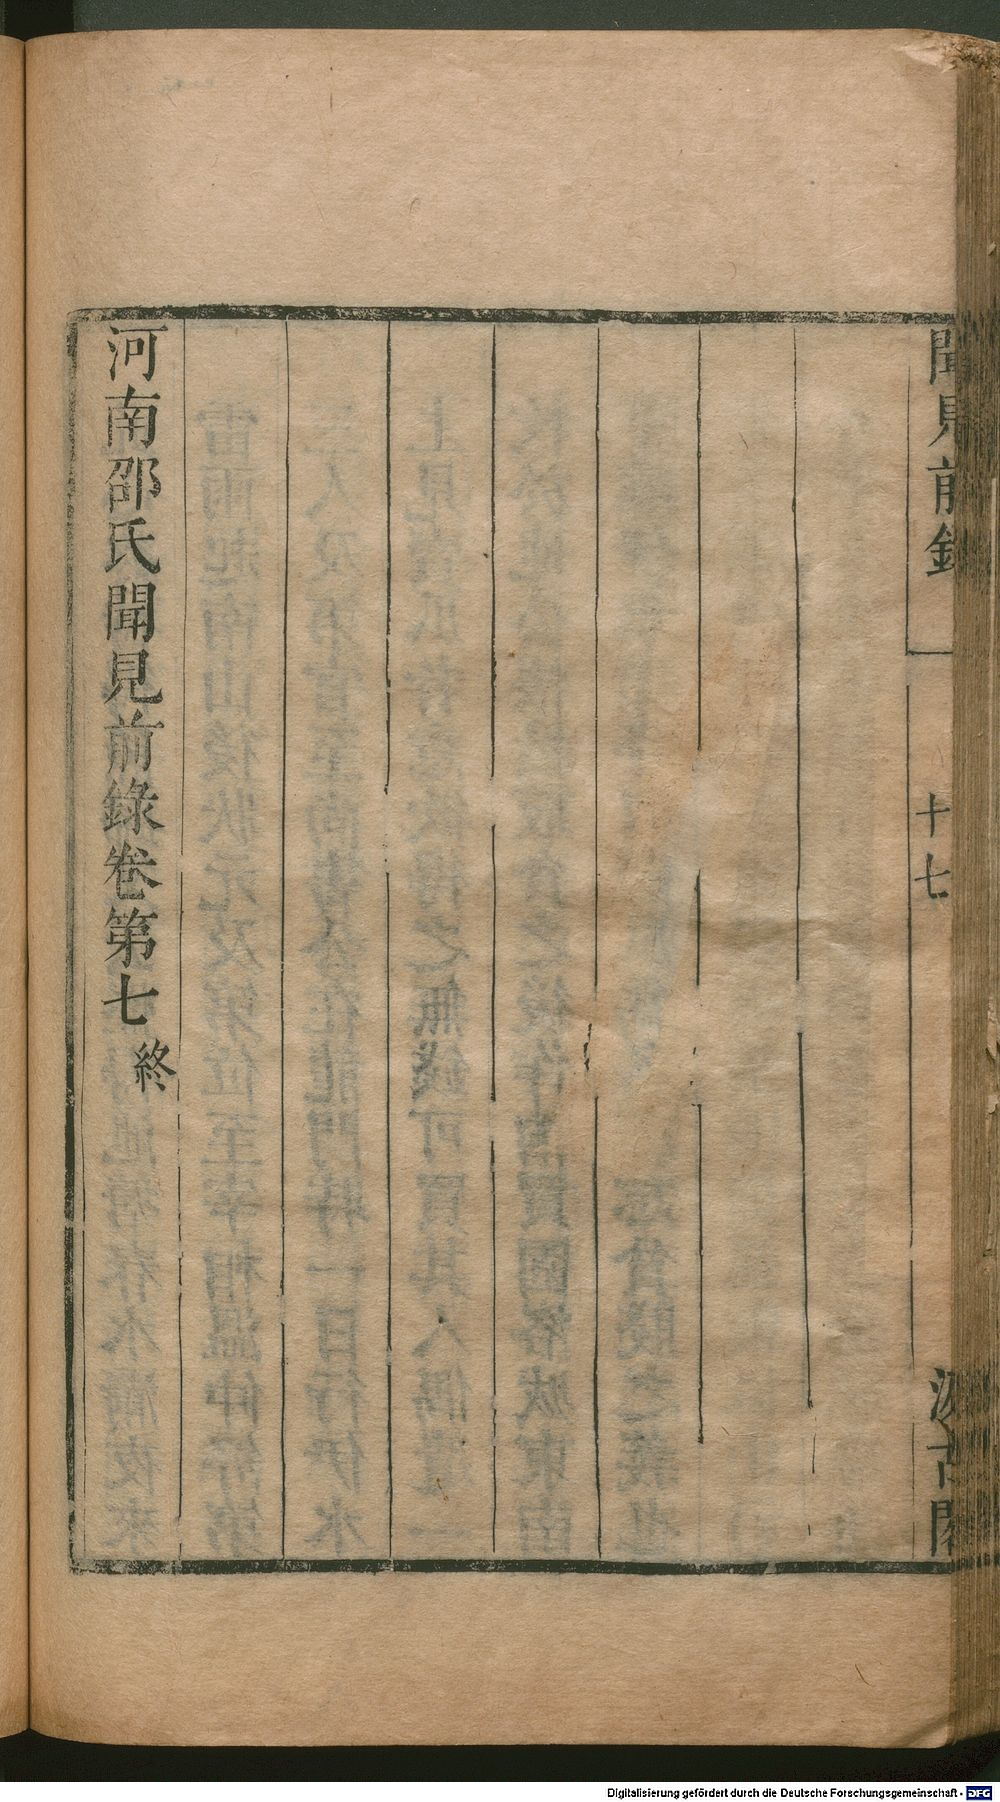 聞見前錄
十七
汲古閣
河南邵氏聞見前錄卷第七終
Digitalisierung gefördert durch die Deutsche Forschungsgemeinschaft - DFG